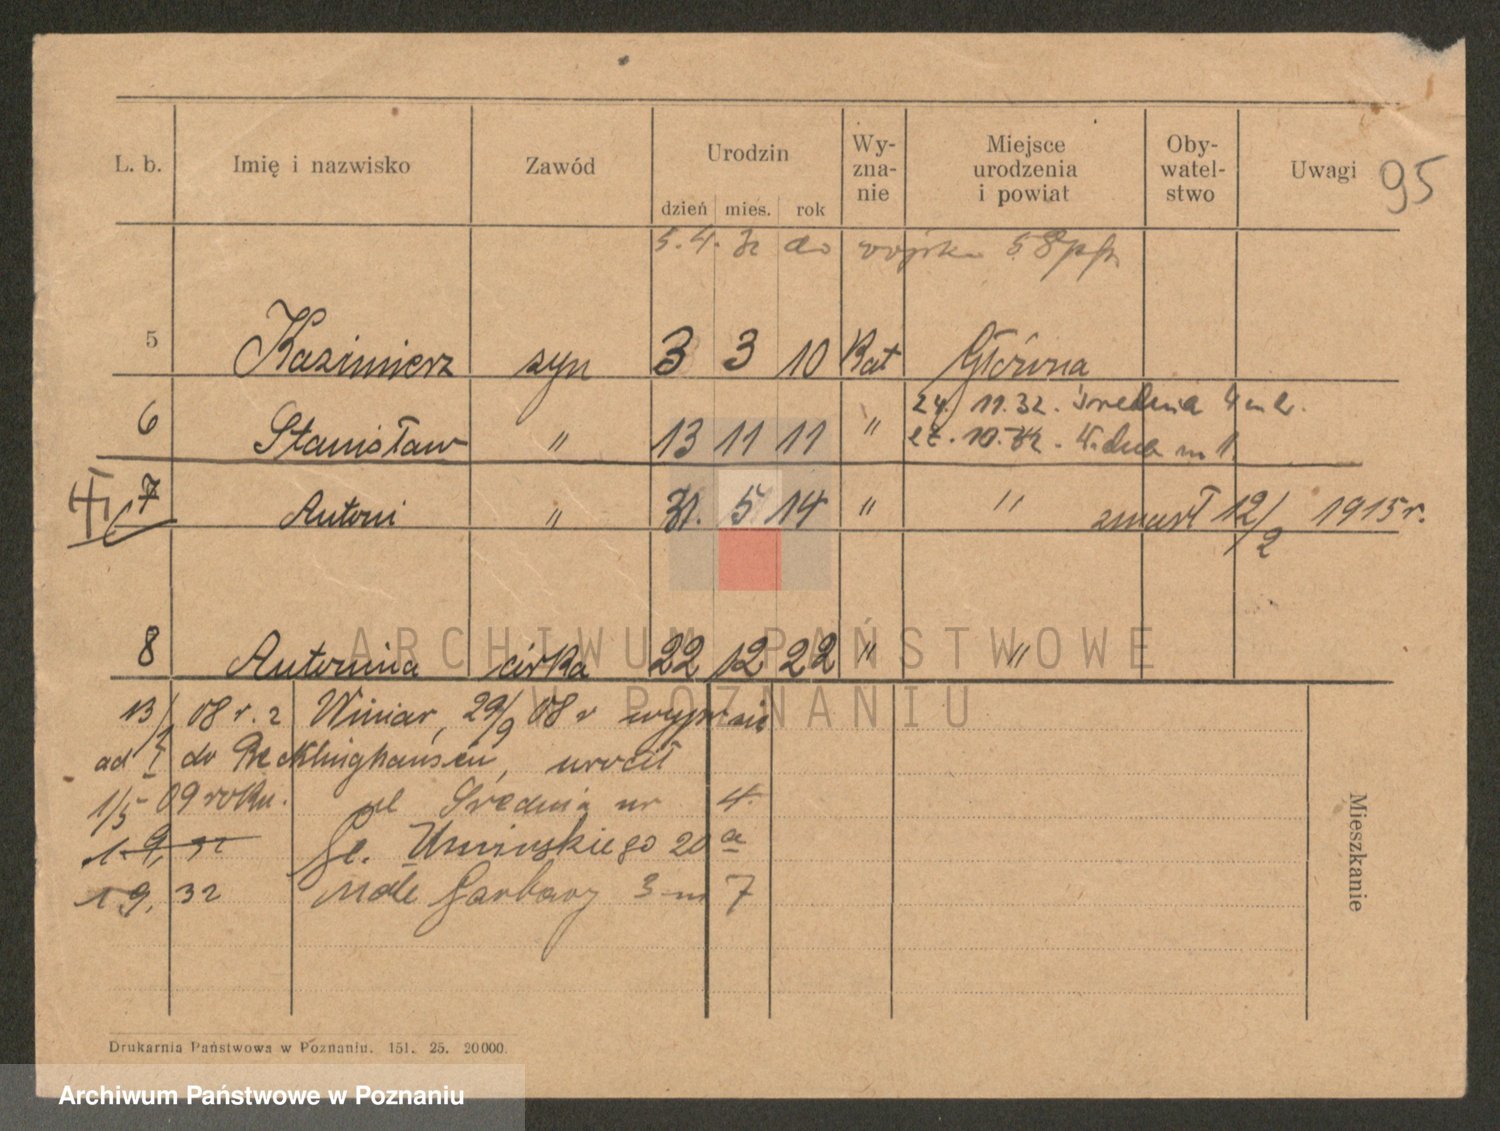 L. b. Imię i nazwisko Zawód Urodzin Wy-zna-nie Miejsce urodzenia i powiat Oby-watel-stwo Uwagi 95
dzień mies. rok
5. 4. 32 do wojska 58 pp
5 Kazimierz syn 3 3 10 Kat Główna
24/ 11. 32. Średnia 4 m 2.
6 Stanisław " 13 11 11 "
27. 10. m 1.
7 Antoni " 31. 5 14 " " zmarł 12/2 1915 r.
8 Antonina córka 22 12 22 " "
ARCHIWUM PAŃSTWOWE
W POZNANIU
13/ 08 r. z Winiar, 29/9 08 r
ad I do Recklinghausen, wrócił
1/5 09 roku. ul Średnia nr 4.
1. 9. 32 Gł. Umińskiego 20 a
1 9, 32 Małe Garbary 3 m 7
Mieszkanie
Drukarnia Państwowa w Poznaniu. 151. 25. 20000.
Archiwum Państwowe w Poznaniu